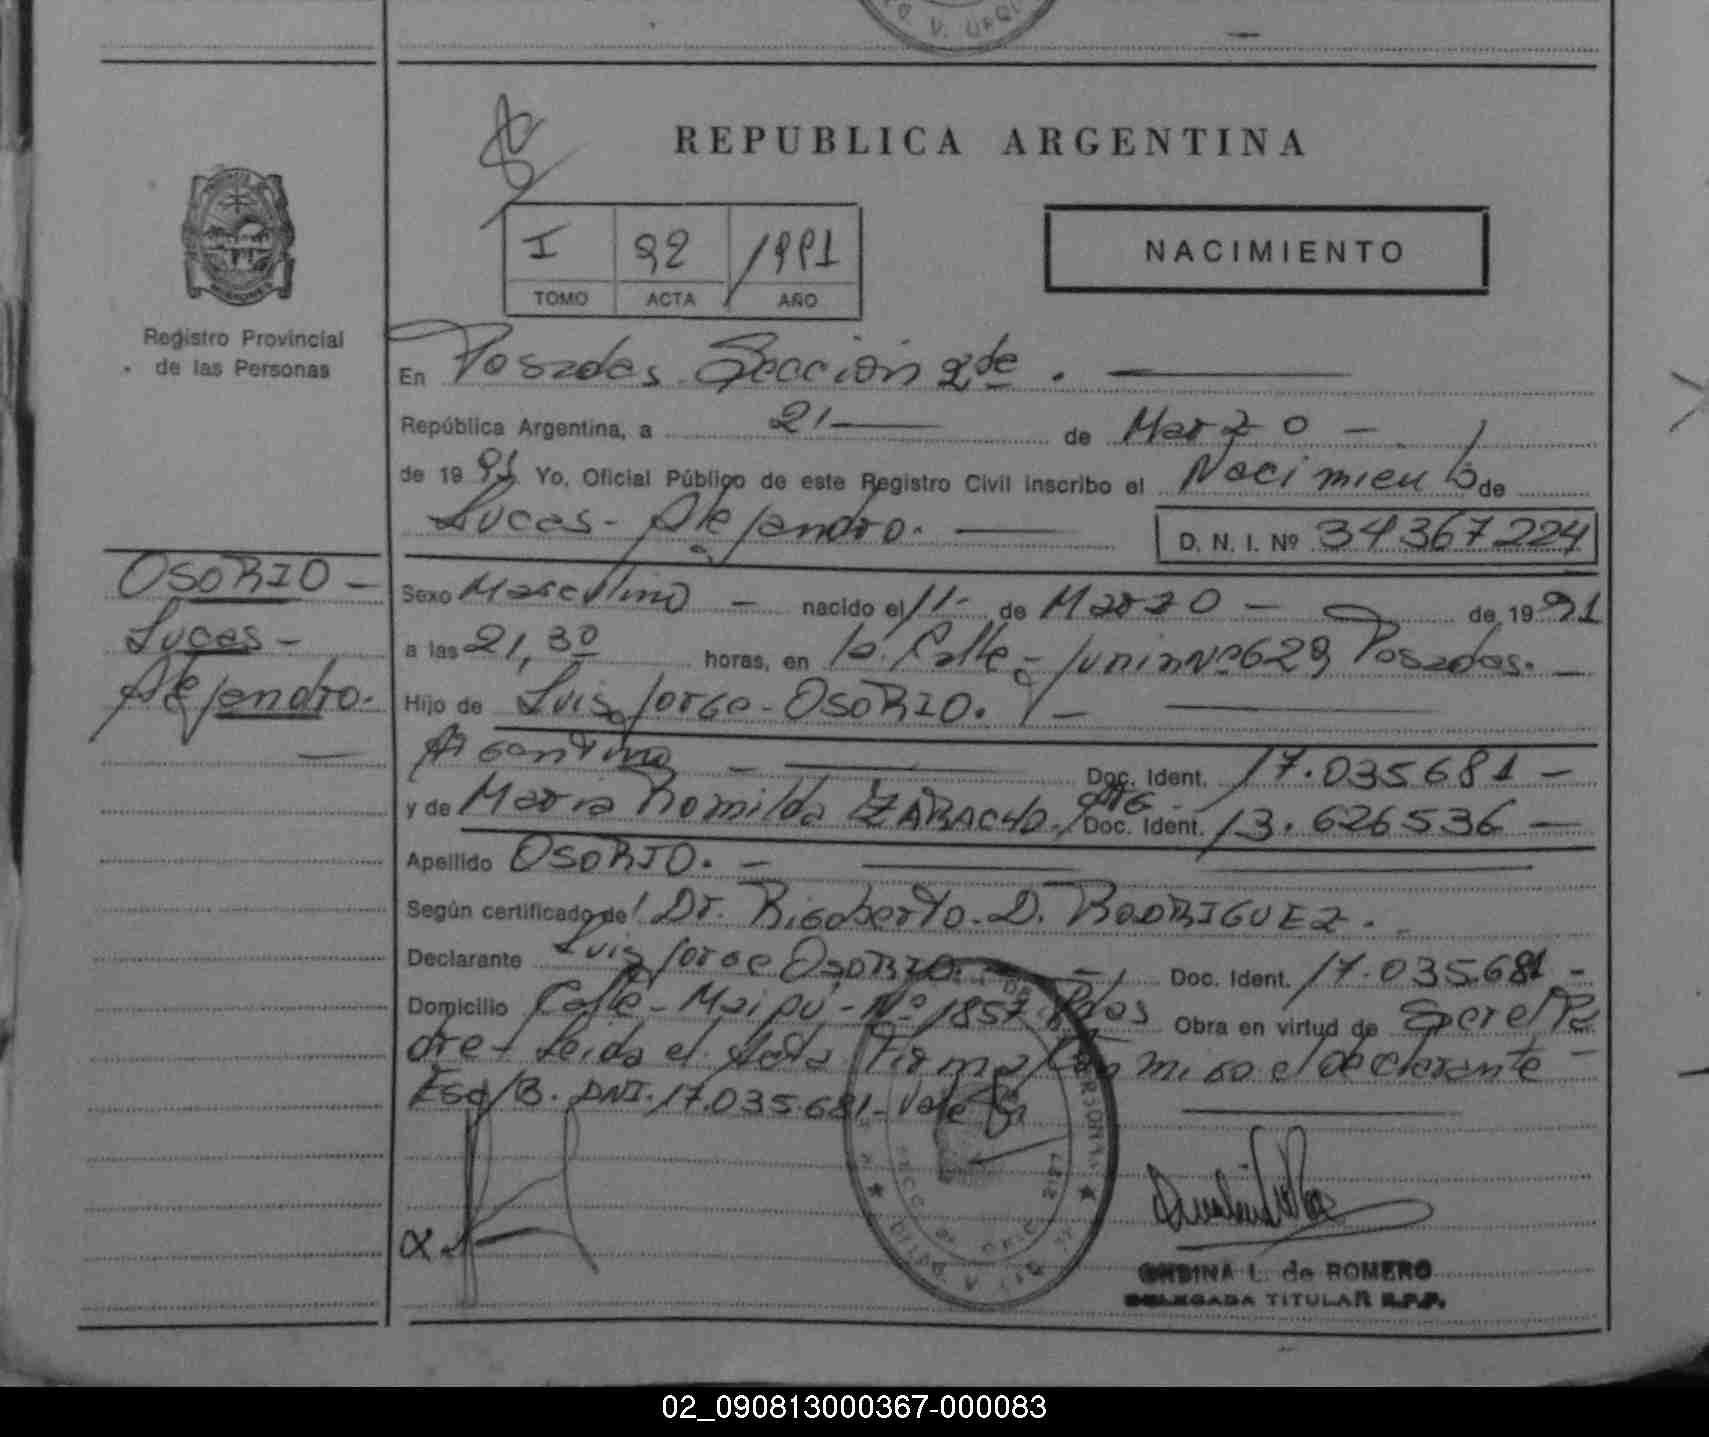 V. URQU
REPUBLICA ARGENTINA
I 92 1991
TOMO ACTA AÑO
NACIMIENTO
Registro Provincial
de las Personas
En Posadas Sección 2da. —
República Argentina, a 21 — de Marzo —
de 1991. Yo, Oficial Público de este Registro Civil inscribo el Nacimiento de
Lucas Alejandro. — D. N. I. Nº 34367224
OSORIO —
Lucas —
Alejandro. —
Sexo Masculino — nacido el 11 - de Marzo — de 1991
a las 21,30 horas, en la Calle - Junin Nº 629 Posadas. —
Hijo de Luis Jorge - OSORIO. —
Argentino — Doc. Ident. 17.035681 —
y de Maria Romilda ZARACHO. ARG. Doc. Ident. 13.626536 —
Apellido OSORIO. —
Según certificado de Dr. Rigoberto. D. RODRIGUEZ.
Declarante Luis Jorge OSORIO. — Doc. Ident. 17.035.681 -
Domicilio Calle - Maipú - Nº 1857 Pdas Obra en virtud de Ser el Pa
dre - Leida el Acta Firma Conmigo el declarante —
Esc/B. DNI. 17.035.681 - Vale
ONDINA L. de ROMERO
DELEGADA TITULAR R.P.P.
02_090813000367-000083